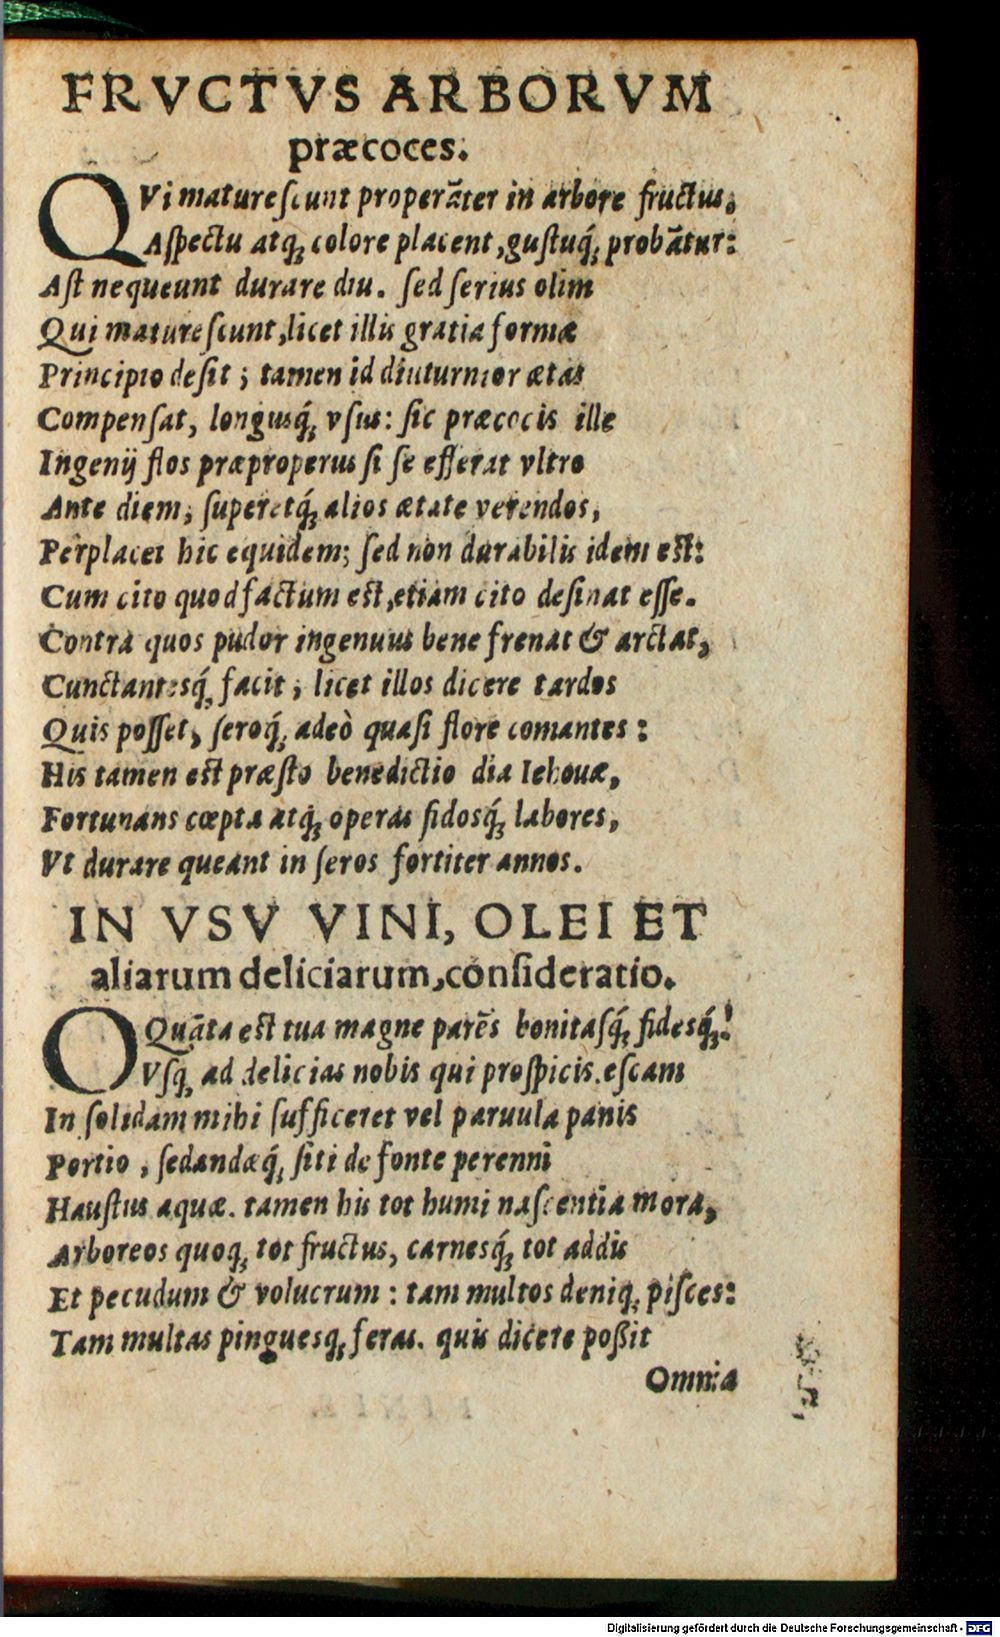 FRVCTVS ARBORVM
præcoces.
QVi maturescunt properāter in arbore fructus,
Aspectu atq; colore placent, gustuq́; probātur:
Ast nequeunt durare diu. sed serius olim
Qui maturescunt, licet illis gratia formæ
Principio desit; tamen id diuturnior ætas
Compensat, longusq́; vsus: sic præcocis ille
Ingenij flos præproperus si se efferat vltro
Ante diem; superetq́; alios ætate verendos,
Perplacet hic equidem; sed non durabilis idem est:
Cum cito quod factum est, etiam cito desinat esse.
Contra quos pudor ingenuus bene frenat & arctat,
Cunctantesq́; facit; licet illos dicere tardos
Quis posset, seroq́; adeò quasi flore comantes:
His tamen est præsto benedictio dia Iehouæ,
Fortunans cœpta atq́; operas fidosq́; labores,
Vt durare queant in seros fortiter annos.
IN VSV VINI, OLEI ET
aliarum deliciarum, consideratio.
O Quāta est tua magne parēs bonitasq́; fidesq́;!
Vsq; ad delicias nobis qui prospicis. escam
In solidam mihi sufficeret vel paruula panis
Portio, sedandæq́; siti de fonte perenni
Haustus aquæ. tamen his tot humi nascentia mora,
Arboreos quoq; tot fructus, carnesq́; tot addis
Et pecudum & volucrum: tam multos deniq; pisces:
Tam multas pinguesq; feras. quis dicere poßit
Omnia
Digitalisierung gefördert durch die Deutsche Forschungsgemeinschaft - DFG